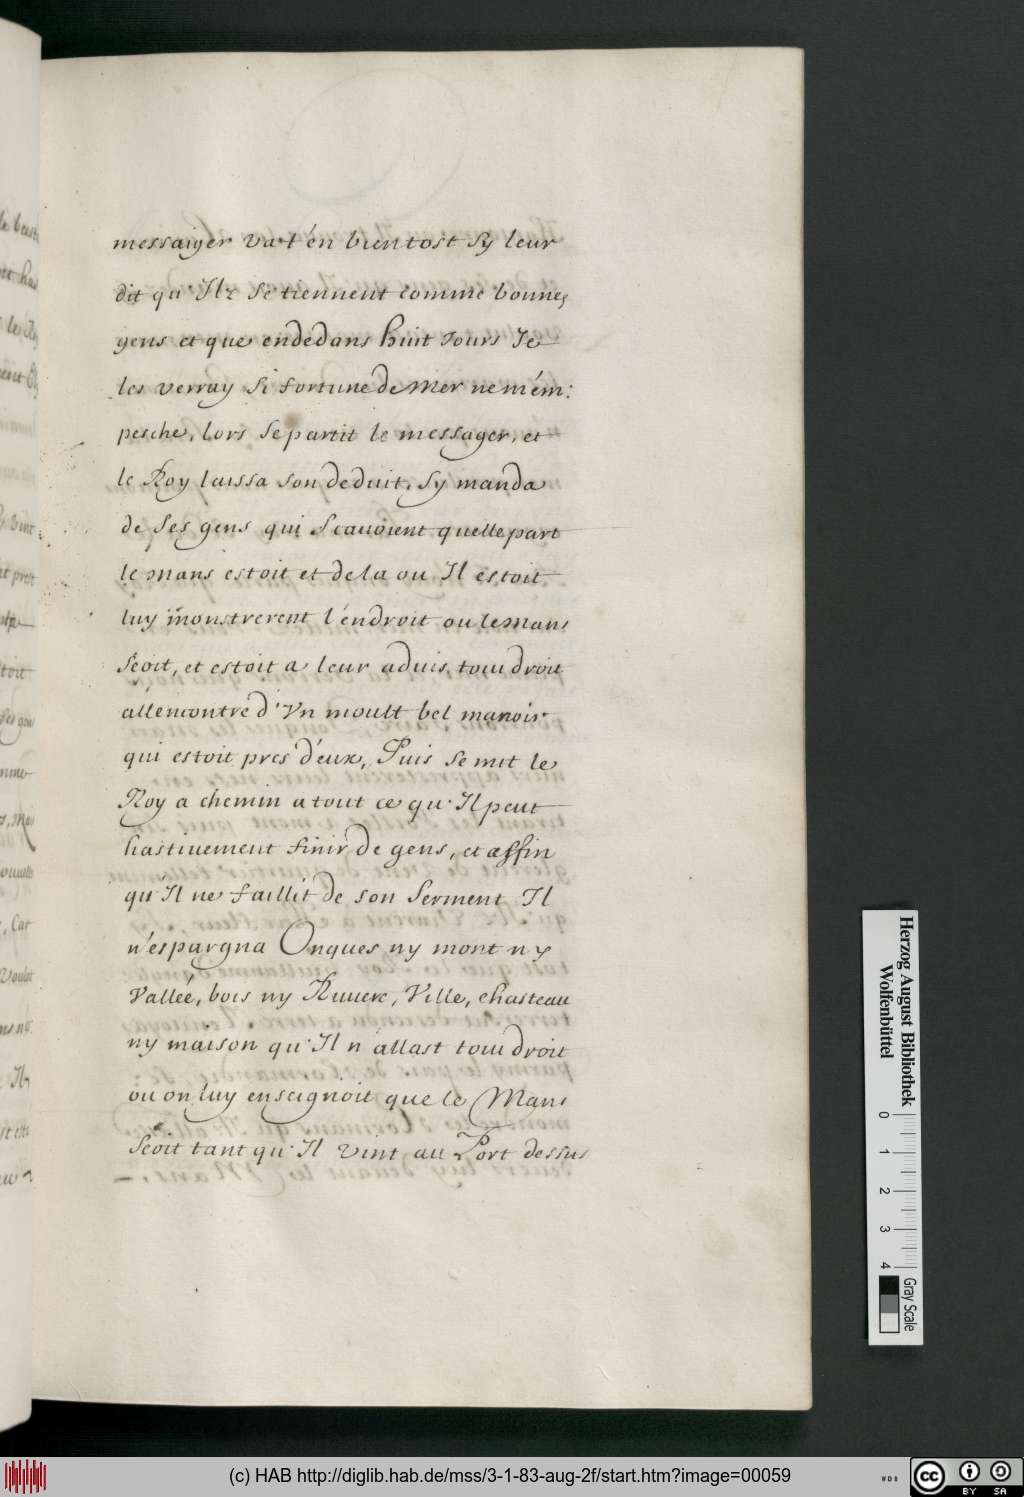 messaiger va t'én bientost sy leur
dit qu'Ilz se tiennent comme bonnes
gens et que endedans huit Jours Je
les verray si fortune de Mer ne m'ém:
pesche, lors se partit le messager, et
le Roy laissa son deduit, sy manda
de ses gens qui scauoient quelle part
le mans estoit et dela ou Il estoit
luy monstrerent l'éndroit ou le Mans
seoit, et estoit a leur aduis tout droit
allencontre d'Vn moult bel manoir
qui estoit pres d'éux, Puis se mit le
Roy a chemin a tout ce qu'Il peut
hastiuement finir de gens, et affin
qu'Il ne faillit de son serment Il
n'espargna Onques ny mont ny
Vallée, bois ny Riuiere, Ville, chasteau
ny maison qu'Il n'allast tout droit
ou on luy enseignoit que le Mans
seoit tant qu'Il vint au Port dessus
Herzog August Bibliothek
Wolfenbüttel
0 1 2 3 4
Gray Scale
(c) HAB http://diglib.hab.de/mss/3-1-83-aug-2f/start.htm?image=00059
cc
BY SA